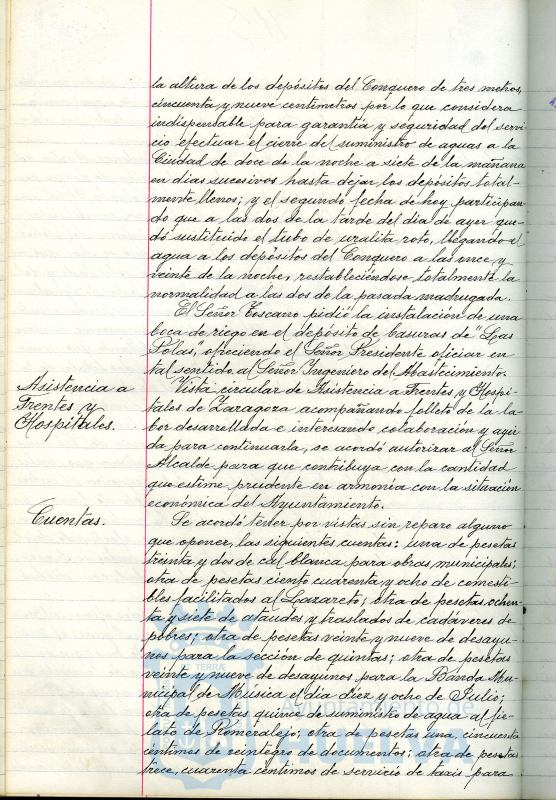 la altura de los depósitos del Conquero de tres metros,
cincuenta y nueve centímetros por lo que considera
indispensable para garantía y seguridad del servi
cio efectuar el cierre del suministro de aguas a la
Ciudad de doce de la noche a siete de la mañana
en dias sucesivos hasta dejar los depósitos total-
mente llenos; y el segundo fecha de hoy, participan
do que a las dos de la tarde del dia de ayer que-
dó sustituido el tubo de uralita roto, llegando el
agua a los depósitos del Conquero a las once y
veinte de la noche, restableciéndose totalmente la
normalidad a las dos de la pasada madrugada.
El Señor Toscano pidió la instalación de una
boca de riego en el depósito de basuras de "Las
Polas", ofreciendo el Señor Presidente oficiar en
tal sentido al Señor Ingeniero del Abastecimiento.
Asistencia a
Frentes y
Hospitales.
Vista circular de Asistencia a Frentes y Hospi-
tales de Zaragoza acompañando folleto de la la-
bor desarrollada e interesando colaboración y ayu
da para continuarla, se acordó autorizar al Señor
Alcalde para que contribuya con la cantidad
que estime prudente en armonía con la situación
económica del Ayuntamiento.
Cuentas.
Se acordo tener por vistas sin reparo alguno
que oponer, las siguientes cuentas: una de pesetas
treinta y dos de cal blanca para obras municipales;
otra de pesetas ciento cuarenta y ocho de comesti-
bles facilitados al Lazareto; otra de pesetas ochen-
ta y siete de ataudes y traslados de cadáveres de
pobres; otra de pesetas veinte y nueve de desayu-
nos para la sección de quintas; otra de pesetas
veinte y nueve de desayunos para la Banda Mu-
nicipal de Música el dia diez y ocho de Julio;
otra de pesetas quince de suministro de agua al fie-
lato de Romeralejo; otra de pesetas una, cincuenta
céntimos de reintegro de documentos; otra de pesetas
trece, cuarenta céntimos de servicio de taxis para
Ayuntamiento de